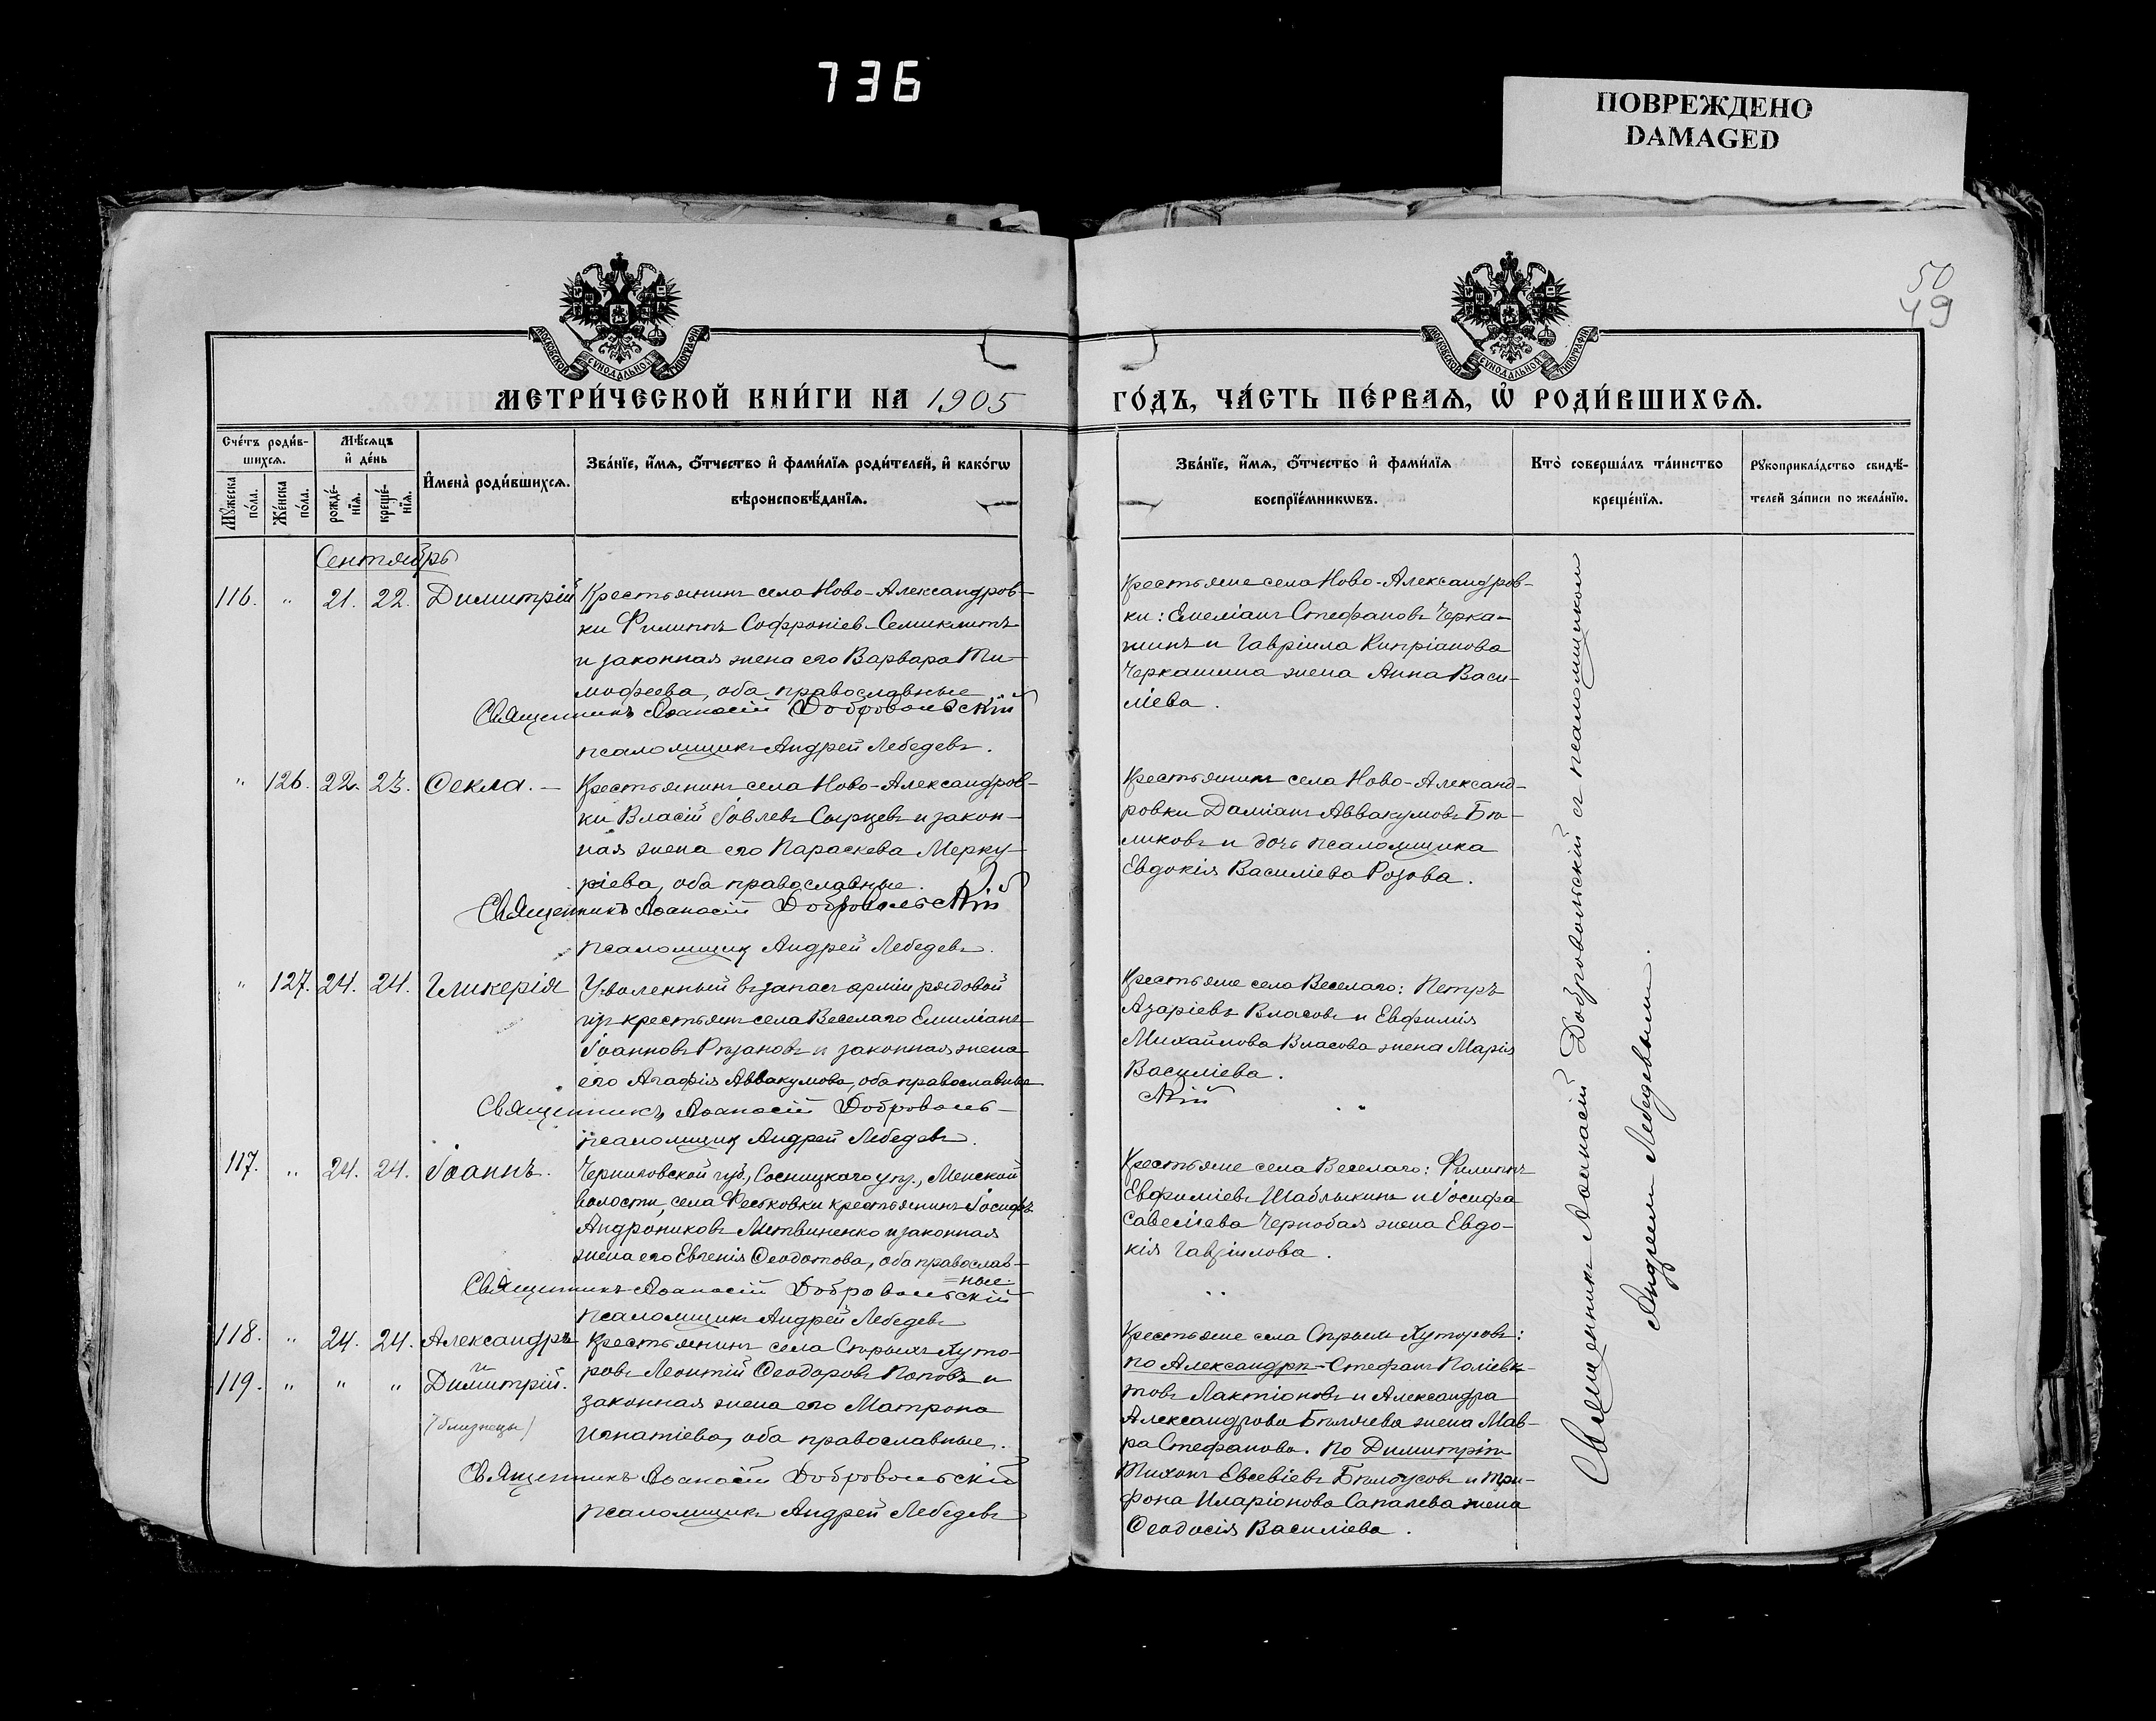 736
ПОВРЕЖДЕНО
DAMAGED
50
49
МОСКОВСКОЙ СѴНОДАЛЬНОЙ ТИПОГРАФІИ
МОСКОВСКОЙ СѴНОДАЛЬНОЙ ТИПОГРАФІИ
МЕТРИ́ЧЕСКОЙ КНИ́ГИ НА 1905
ГО́ДЪ, ЧА́СТЬ ПЕ́РВАѦ, Ѡ҆ РОДИ́ВШИХСѦ.
Счéтъ роди́в-
шихсѧ.
Мꙋ́жеска
по́ла.
Же́нска
по́ла.
Мѣ́сѧцъ
и҆ де́нь
рожде́-
нїѧ.
креще́-
нїѧ.
И҆мена̀ роди́вшихсѧ.
Зва́нїе, и҆́мѧ, ѻ҆́тчество и҆ фами́лїѧ роди́телей, и҆ како́гѡ
вѣроисповѣ́данїѧ.
Зва́нїе, и҆́мѧ, ѻ҆́тчество и҆ фами́лїѧ
воспрїе́мникѡвъ.
Кто̀ соверша́лъ та́инство
креще́нїѧ.
Рꙋкоприкла́дство свидѣ́-
телей за́писи по жела́нїю.
Сентябрь
116. " 21. 22. Димитрій
Крестьянинъ села Ново-Александров-
ки Филиппъ Софроніев Семиклитъ
и законная жена его Варвара Ти-
мофеева, оба православные
Священникъ Аѳанасій Добровольскій
псаломщикъ Андрей Лебедевъ.
Крестьяне села Ново-Александров-
ки: Емеліанъ Стефановъ Черка-
шинъ и Гавріила Кипріанова
Черкашина жена Анна Васи-
ліева.
" 126. 22. 23. Ѳекла. —
Крестьянинъ села Ново-Александров-
ки Власій Іовлевъ Сырцевъ и закон-
ная жена его Параскева Мерку-
ріева, оба православные.
Священникъ Аѳанасій Добровольскій
псаломщик Андрей Лебедевъ.
Крестьянинъ села Ново-Александ-
ровки Даміанъ Аввакумовъ Бѣ-
ликовъ и дочь псаломщика
Евдокія Василіева Розова.
" 127. 24. 24. Гликерія
Уволенный въ запасъ арміи рядовой
изъ крестьянъ села Веселаго Емиліанъ
Іоанновъ Рязановъ и законная жена
его Агафія Аввакумова, оба православные
Священникъ Аѳанасій Доброволь-
скій
псаломщик Андрей Лебедевъ.
Крестьяне села Веселаго: Петръ
Азаріевъ Власовъ и Евфимія
Михайлова Власова жена Марія
Василіева.
117. " 24. 24. Іоаннъ.
Черниговской губ., Сосницкаго уѣз., Менской
волости, села Феськовки крестьянинъ Іосифъ
Андрониковъ Литвиненко и законная
жена его Евгенія Ѳеодотова, оба православ-
=ные.
Священникъ Аѳанасій Добровольскій
псаломщикъ Андрей Лебедевъ
Крестьяне села Веселаго: Филиппъ
Евфиміевъ Шаблыкинъ и Іосифа
Савеліева Чернобая жена Евдо-
кія Гавріилова.
118. " 24. 24. Александръ
и
119. " " " Димитрій.
(близнецы)
Крестьянинъ села Старыхъ Хуто-
ровъ Леонтій Ѳеодоровъ Поповъ и
законная жена его Матрона
Игнатіева, оба православные.
Священникъ Аѳанасій Добровольскій
псаломщикъ Андрей Лебедевъ
Крестьяне села Старыхъ Хуторовъ:
по Александрѣ - Стефанъ Поліевк-
товъ Лактіоновъ и Александра
Александрова Бѣляева жена Мав-
ра Стефанова. По Димитріѣ
Тихонъ Евсевіевъ Бѣлоусовъ и Три-
фона Иларіонова Сапалева жена
Ѳеодосія Василіева.
Священникъ Аѳанасій Добровольскій съ псаломщикомъ
Андреемъ Лебедевымъ.